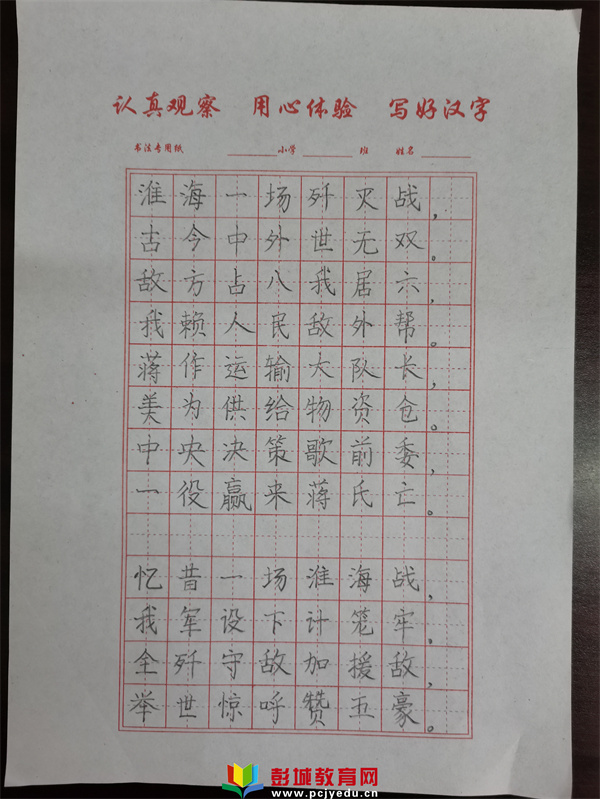 认真观察 用心体验 写好汉字
书法专用纸 小学 班 姓名
淮海一场歼灭战，
古今中外世无双。
敌方占八我居六，
我赖人民敌外帮。
蒋作运输大队长，
美为供给物资仓。
中央决策歌前委，
一役赢来蒋氏亡。
忆昔一场淮海战，
我军设下计笼牢。
全歼守敌加援敌，
举世惊呼赞五豪。
彭城教育网
www.pcjyedu.cn